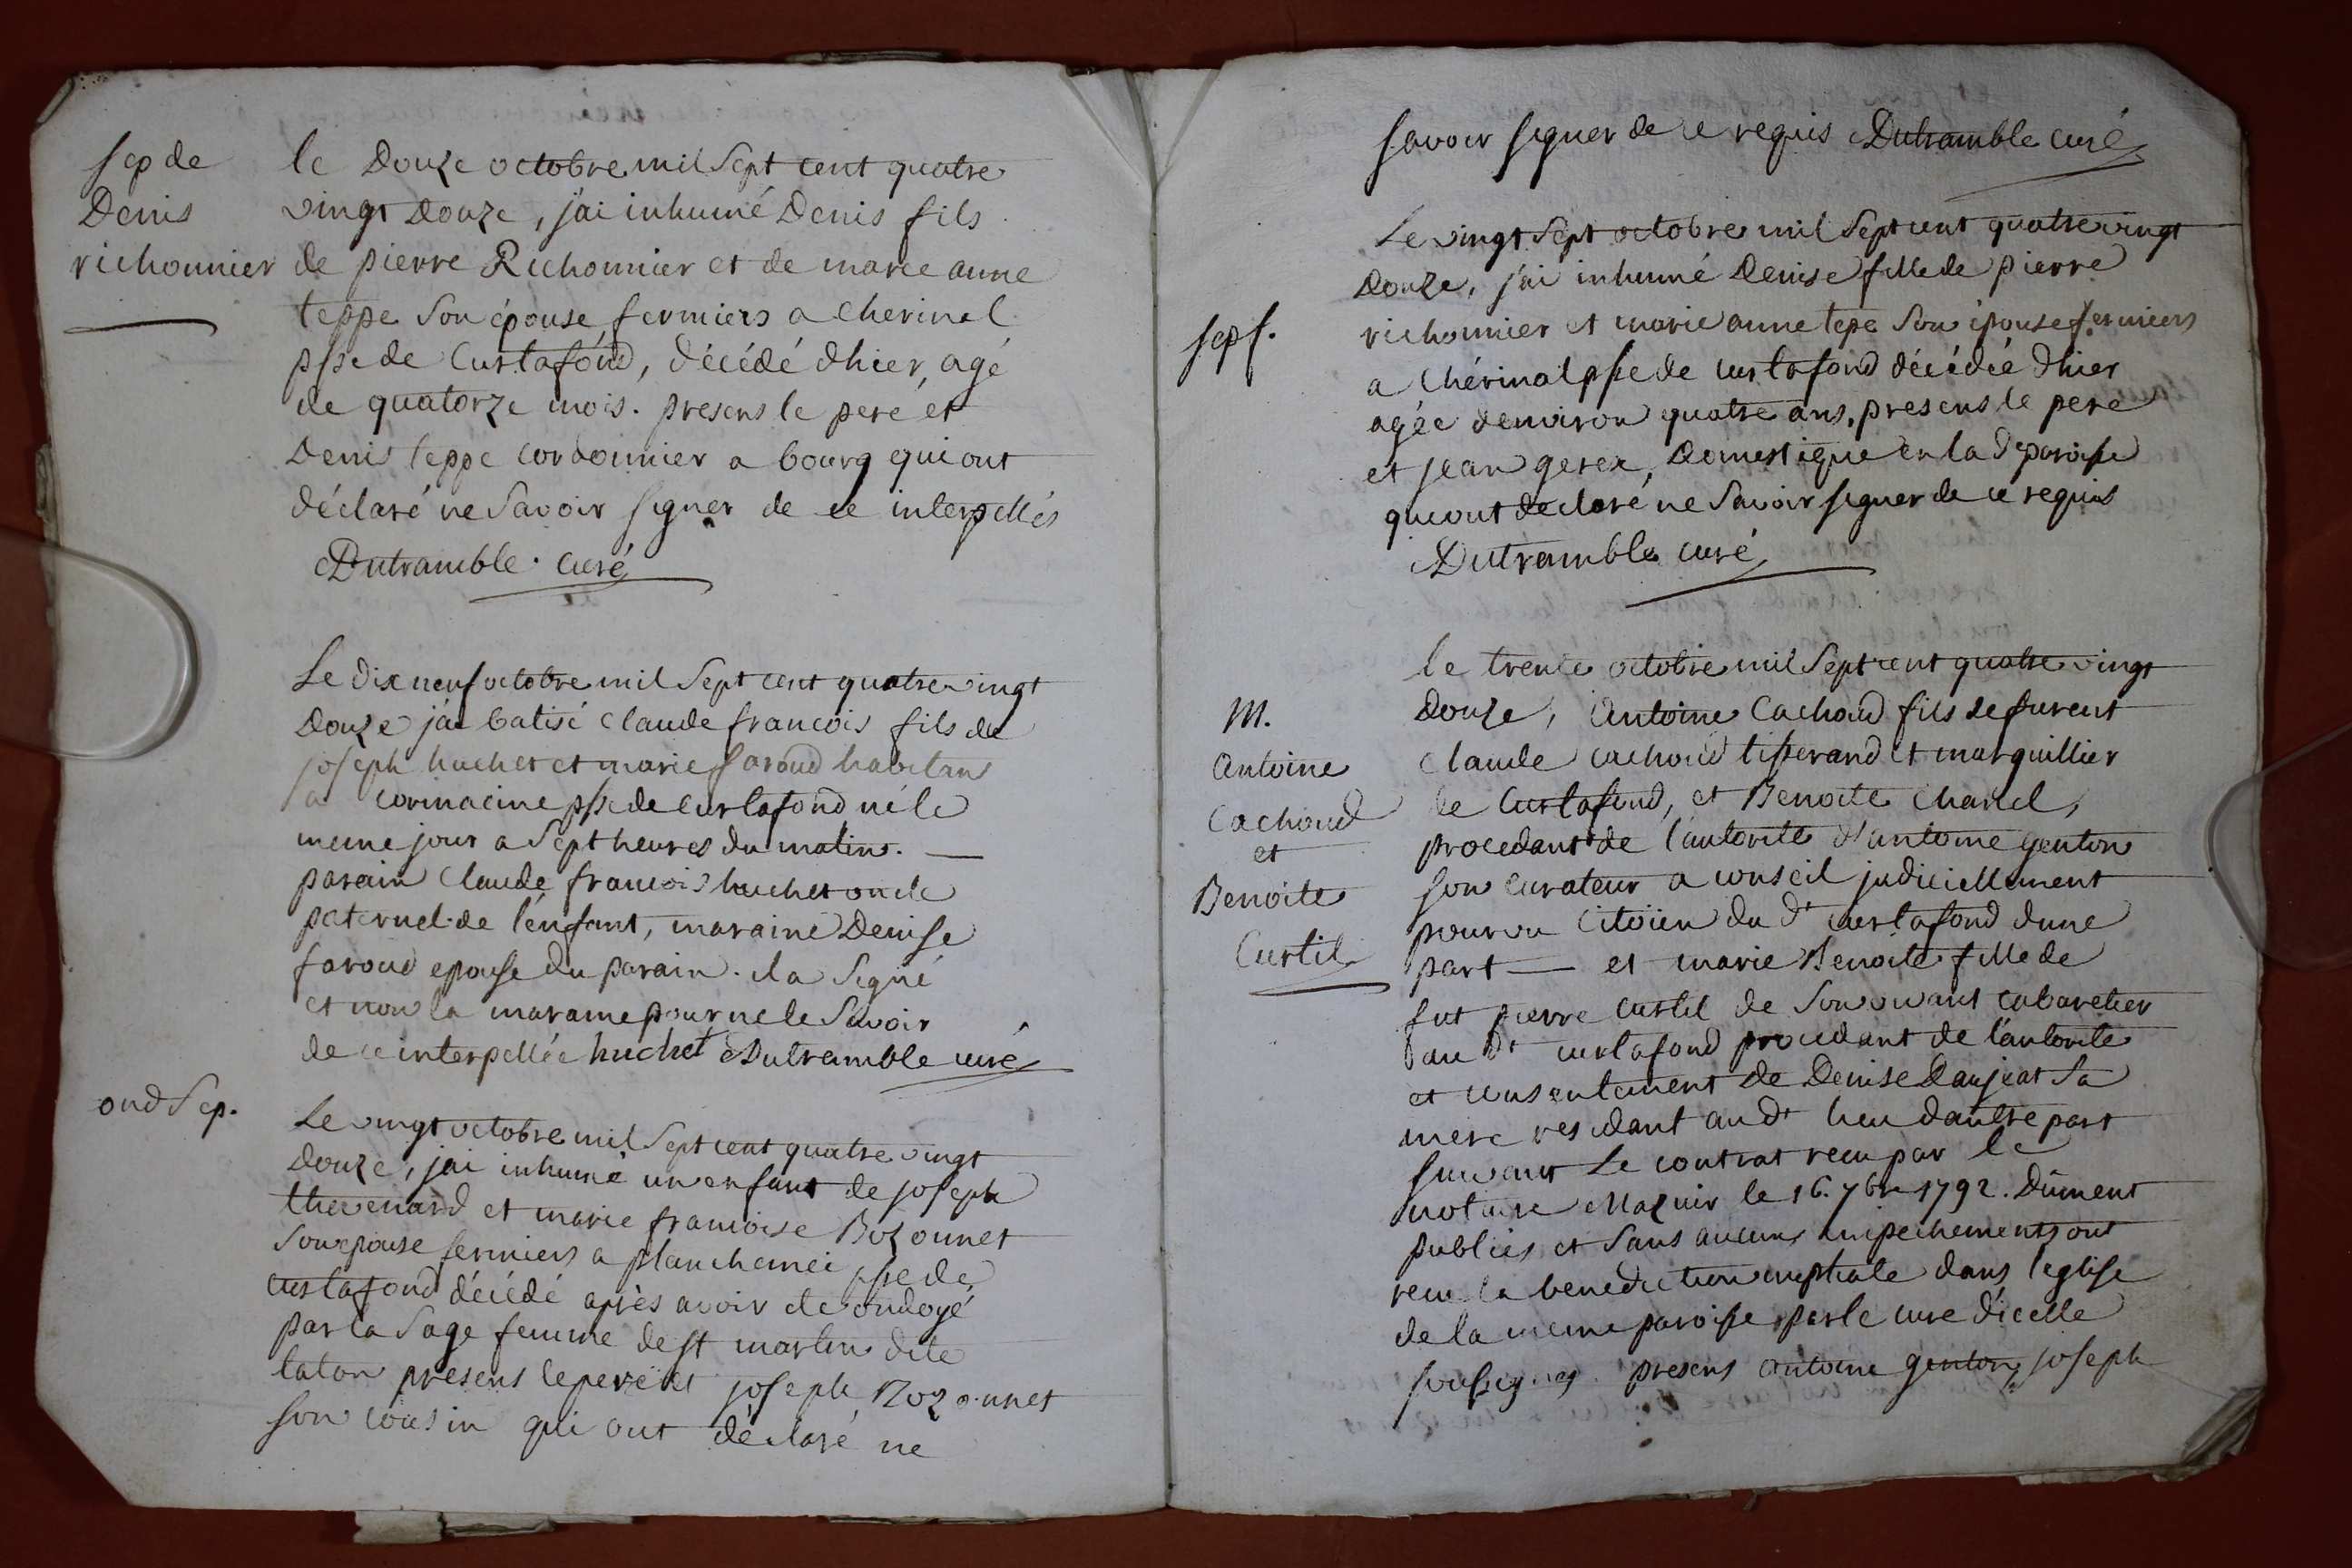 sep de
Denis
richonnier
le Douze octobre mil sept cent quatre
vingt Douze, j'ai inhumé Denis fils
de pierre Richonnier et de marie anne
teppe son épouse fermiers a cherinal
psse de Curtafond, décédé d'hier, agé
de quatorze mois. presens le pere et
Denis teppe cordonnier a bourg qui ont
déclaré ne savoir signer de ce interpellés
Dutramble curé
Le dix neuf octobre mil sept cent quatre vingt
Douze j'ai batisé claude francois fils de
joseph huchet et marie faroud habitan
a cormacine psse de curtafond né le
meme jour a sept heures du matin.
parain claude francois huchet oncle
paternel de l'enfant, maraine Denise
faroud epouse du parain. il a signé
et non la maraine pour ne le savoir
de ce interpellée huchet Dutramble curé
ond Sep.
Le vingt octobre mil sept cent quatre vingt
Douze, j'ai inhumé un enfant de joseph
thevenard et marie francoise Bozonnet
son epouse fermiers a planchemei psse de
curtafond décédé après avoir ete ondoyé
par la sage femme de st martin dite
laton presens le pere et joseph Bozonnet
son cousin qui ont déclaré ne
savoir signer de ce requis Dutramble curé
sepf.
Le vingt sept octobre mil sept cent quatre vingt
Douze, j'ai inhumé Denise fille de pierre
richonnier et marie anne tepe son épouse fermiers
a chérinal psse de curtafond décédée d'hier
agée d'environ quatre ans, presens le pere
et jean gerex, Domestique en la d paroisse
qui ont declaré ne savoir signer de ce requis
Dutramble curé
M.
Antoine
Cachoud
et
Benoite
Curtil
le trente octobre mil sept cent quatre vingt
Douze, Antoine Cachoud fils de furent
claude cachoud tisserand et marguillier
de Curtafond, et Benoite Charel,
procedant de l'autorité d'antoine genton
son curateur a conseil judiciellement
pourvu citöien du dt curtafond d'une
part — et marie Benoite fille de
fut pierre curtil de son vivant cabaretier
au dt curtafond procedant de l'autorité
et consentement de Denise Danjeat sa
mere residant au dt lieu d'autre part
suivant Le contrat recu par le
notaire Mazuir le 16. 7bre 1792. Dûment
publiés et sans aucuns empechements ont
recu la benediction nuptiale dans l'eglise
de la meme paroisse par le curé d'icelle
soussigné presens antoine genton, joseph